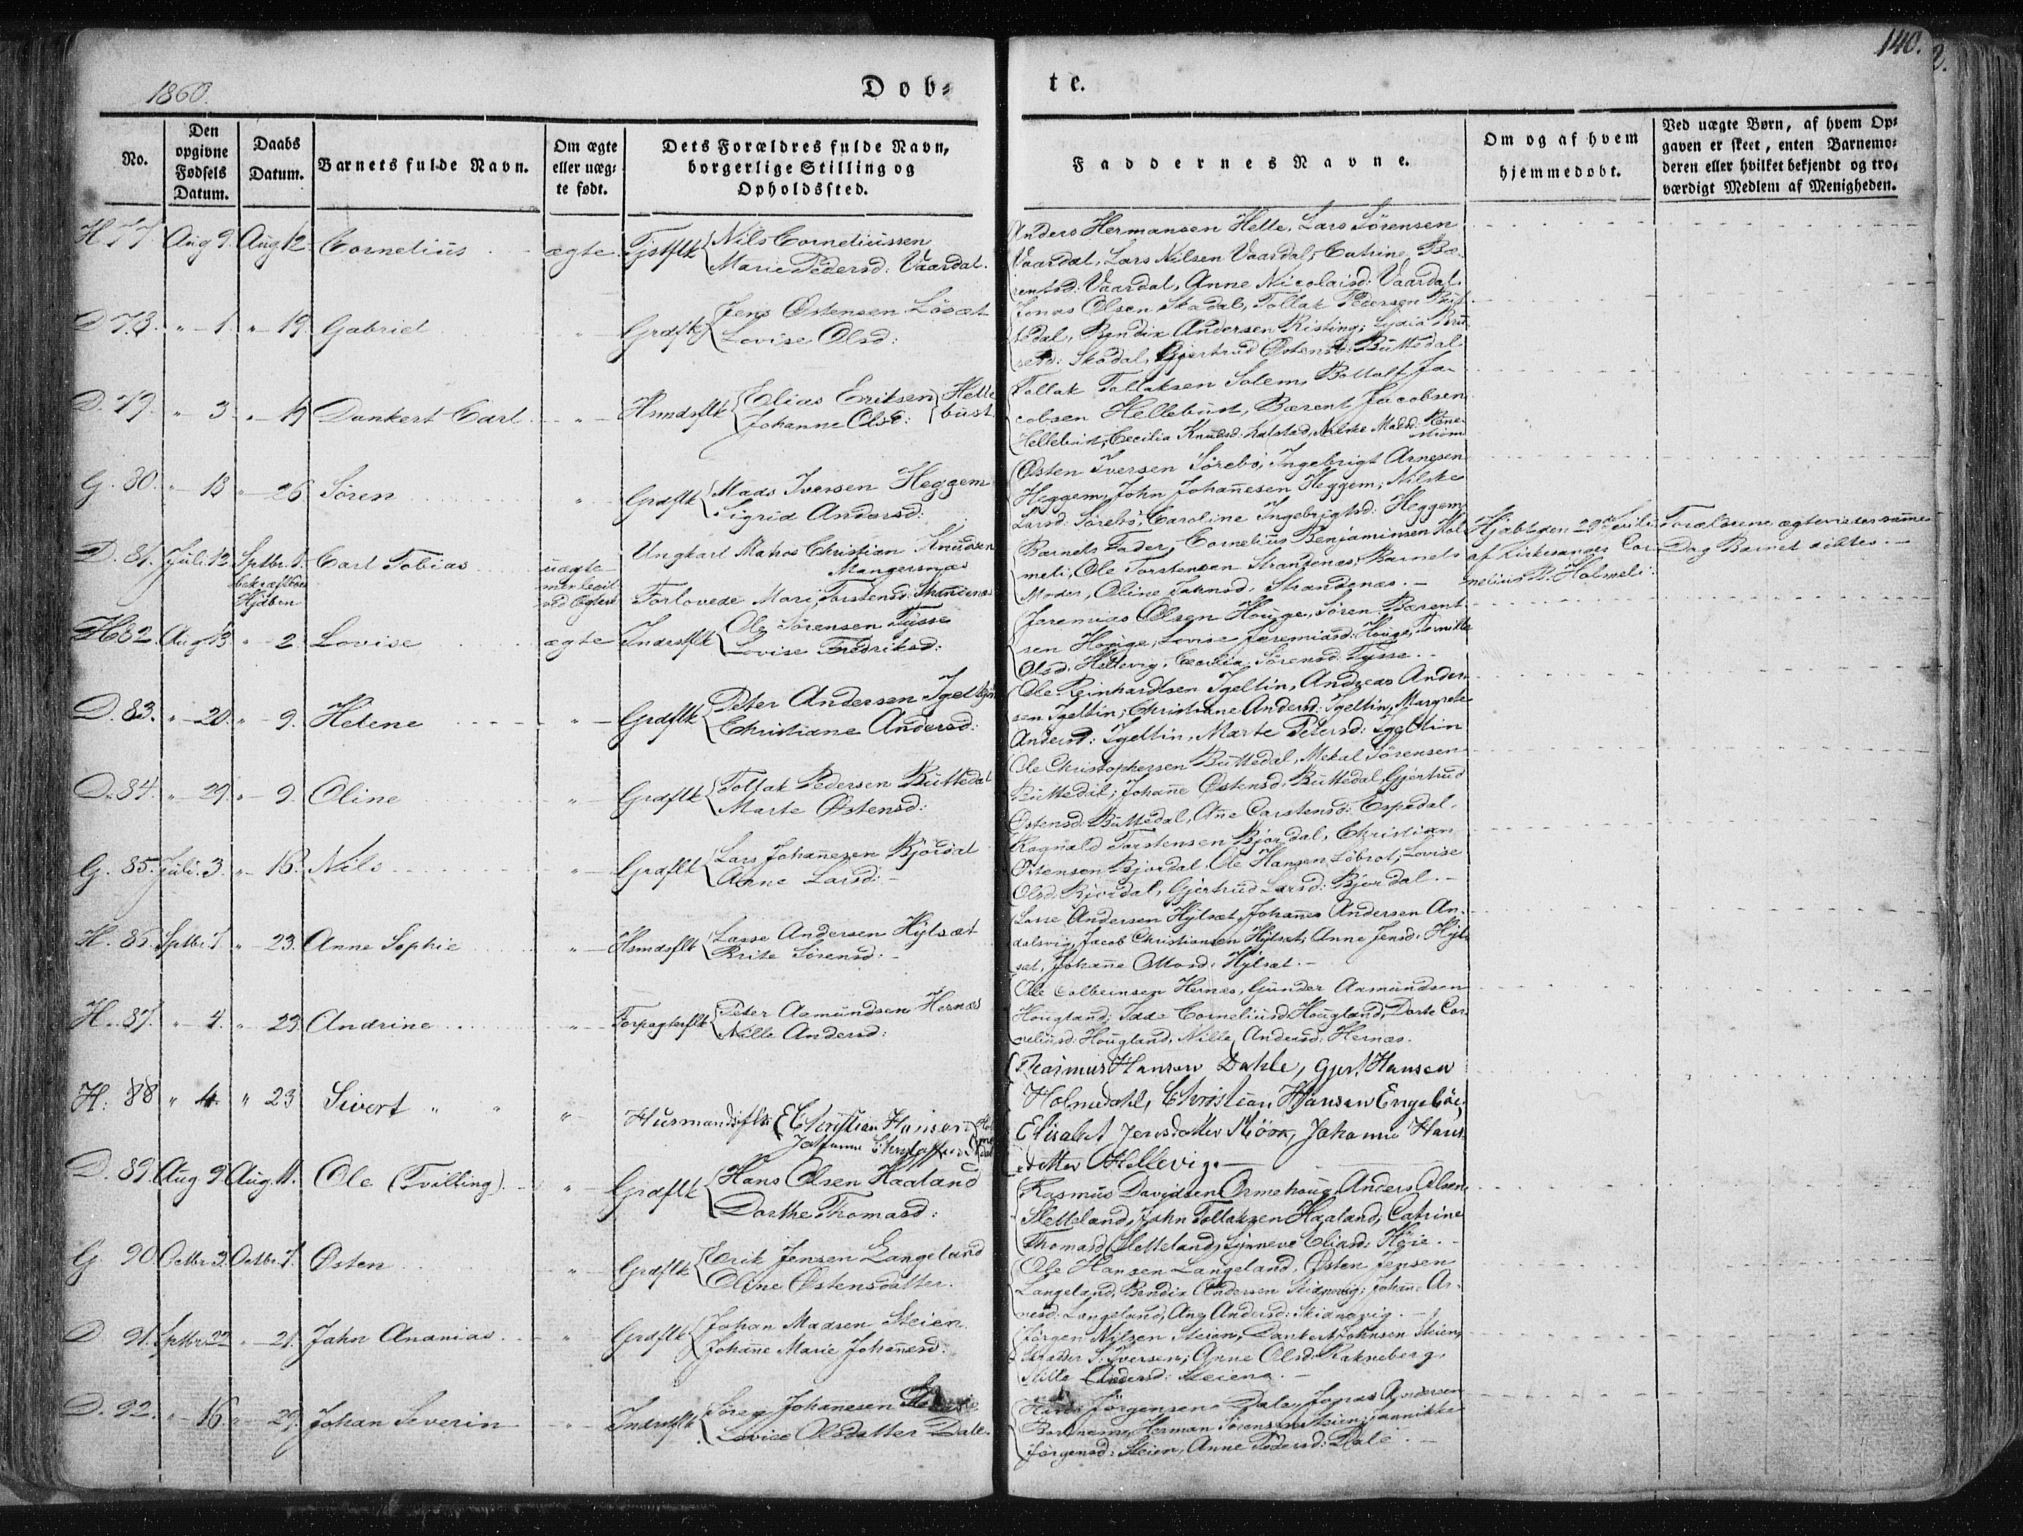 1860.
Døb-
te.
140.
2.
No.
Den opgivne Fødsels Datum.
Daabs Datum.
Barnets fulde Navn.
Om ægte eller uægte født.
Dets Forældres fulde Navn, borgerlige Stilling og Opholdssted.
Faddernes Navne.
Om og af hvem hjemmedøbt.
Ved uægte Børn, af hvem Opgaven er skeet, enten Barnemoderen eller hvilket bekjendt og troværdigt Medlem af Menigheden.
H. 77. Aug 9. Aug 12. Cornelius ægte Nils Corneliussen
Marie Pedersd: Vaardal.
Anders Hermansen Helle, Lars Sørensen
Vaardal, Lars Nilsen Vaardal; Catrine Bæ-
rentsd: Vaardal, Anne Nicolaisd: Vaardal.
D. 78. " 1. " 19. Gabriel " Grdflk Jens Østensen Løsæt
Lovise Olsd:
Jonas Olsen Skadal, Tollak Pedersen
Bendix Andersen Risting; Lydia
Skadal, Gjertrud Østensd: Büttedal
D. 79. " 3 " 19 Dankert Carl " Hsmdsflk Elias Eriksen Helle-
Johanne Olsd: büst
Tollak Tollaksen Solem, Bottolf Ja-
cobsen Hellebüst, Bærent Jacobsen
Hellebüst; Cecilia Knudsd:
G. 80. " 18 " 26 Søren " Grdflk Mads Iversen Heggem
Sigrid Andersd:
Østen Iversen Sørebø, Ingebrigt Arnesen
Heggem, John Johannesen Heggem; Nilske
Larsd: Sørebø, Caroline Ingebrigtsd: Heggem
D. 81. Juli 12 Sptbr 1. Carl Tobias uægte Ungkarl Matros Christian Knudsen
bekræftet Hjdøben Mangersnæs
Forlovede Mari Torstensd: Strandenæs
Barnets Fader, Cornelius Benjaminsen Hol-
meli, Ole Torstensen Strandenæs; Barnets
Moder, Oline Jahnsd: Strandenæs.
Hjdøbt den 29de Juli
af Kirkesanger Cor-
nelius B. Holmeli.
Forældrene ægtevies samme
Dag Barnet døbtes.
H 82 Aug 13 " 2 Lovise ægte Indrstflk Ole Sørensen Tysse
Lovise Fredriksd:
Jeremias Olsen Houge, Søren Bærent-
sen Houge, Lovise Jeremiasd: Houge,
Olsd: Hellevig, Cecilia Sørensd: Tysse.
D. 83. " 20. " 9. Helene " Grdflk Peter Andersen Igeltin
Christiane Andersd:
Ole Reinhardtsen Igeltin, Andreas Ander-
sen Igeltin; Christiane Andersd: Igeltin, Margrete
Andersd: Igeltin, Marte Petersd: Igeltin
D. 84. " 29. " 9. Oline " Grdflk Tollak Pedersen Büttedal
Marte Østensd:
Ole Christophersen Büttedal, Mekal Sørensen
Büttedal; Johanne Østensd: Büttedal, Gjertrud
Østensd: Büttedal, Ane Carstensd: Espedal.
G. 85. Juli 3 " 16. Nils " Grdflk Lars Johannesen Bjordal
Anne Larsd:
Ragnald Torstensen Bjordal, Christian
Østensen Bjordal, Ole Hansen Løbrot; Lovise
Olsd: Bjordal, Gjertrud Larsd: Bjordal.
H. 86. Sptbr 1 " 23. Anne Sophie " Hsmdsflk Lasse Andersen Hylsæt
Brite Sørensd.
Lasse Andersen Hylsæt, Johannes Andersen An-
dalsvig, Jacob Christiansen Hylsæt; Anne Jensd: Hyl-
sæt, Johanne Olsd: Hylsæt.
H. 87. " 4. " 23 Andrine " Forpagterflk Peter Aamundsen Hernæs
Nille Andersd:
Ole Colbeinsen Hernæs, Gunder Aamundsen
Hougland; Corneliusd: Hougland, Dorte Cor-
neliusd: Hougland, Nille Andersd: Hernæs.
H. 88 " 4. " 23 Sivert " " " Husmandsflk Christian Hansen
Johanne
Rasmus Hansen Dahle, Gjert Hansen
Holmedahl, Christian Hansen Engebøe,
Elisabet Jensdatter Johanne Hans-
datter Hellevig.
D. 89. Aug 9. Aug. 11. Ole (Tvilling). " Grdflk Hans Olsen Haaland
Dorthe Thomasd:
Rasmus Davidsen Ormehoug, Anders Olsen
Sletteland, John Tollaksen Haaland; Catrine
Thomasd: Sletteland, Synneve Eliasd: Høie.
G. 90. Octbr 3. Octbr 7. Østen " Grdflk Erik Jensen Langeland
Oline Østensdatter.
Ole Hansen Langeland, Østen Jensen
Langeland, Bendix Andersen
Langeland, Andersd:
D. 91. Sptbr 22 " 21. Jahn Ananias " Grdflk Johan Madsen Steien
Johanne Marie Johannesd:
Jørgen Nilsen Steien, Dankert Johnsen Steien,
S. Iversen; Anne Olsd: Rakneberg,
Nille Andersd: Steiene.
D. 92. " 16. " 29. Johan Severin " Indrstflk Søren Johannesen
Lovise Olsdatter Dale.
Hans Jørgensen Dale, Jonas Andersen
Herman Sørensen Steien; Jannikke
Jørgensd: Steien, Anne Pedersd: Dale.